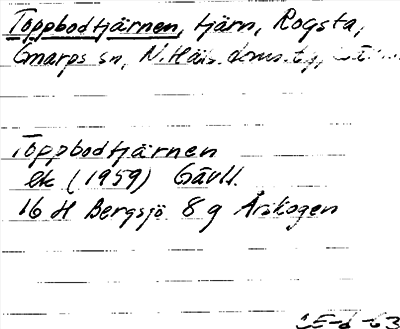 Toppbodtjärnen, tjärn, Rogsta,
Gnarps sn, N. Häls. doms.
Toppbodtjärnen
ek (1959) Gävl.
16 H Bergsjö 8 g Årskogen